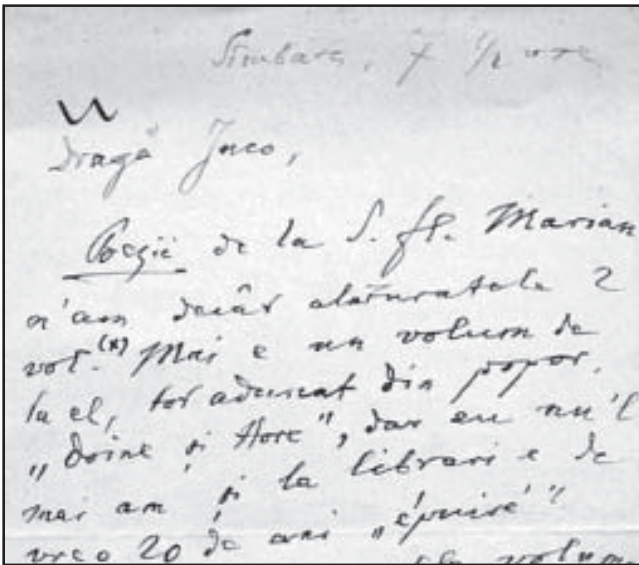 Sîmbătă, 7 1/2 ore
Dragă Juco,
Poezii de la S. Fl. Marian
n'am decât alăturatele 2
vol.(x) Mai e un volum de
la el, tot adunat din popor,
„Doine și Hore", dar eu nu'l
mai am și la librari e de
vreo 20 de ani „épuisé"!
volum